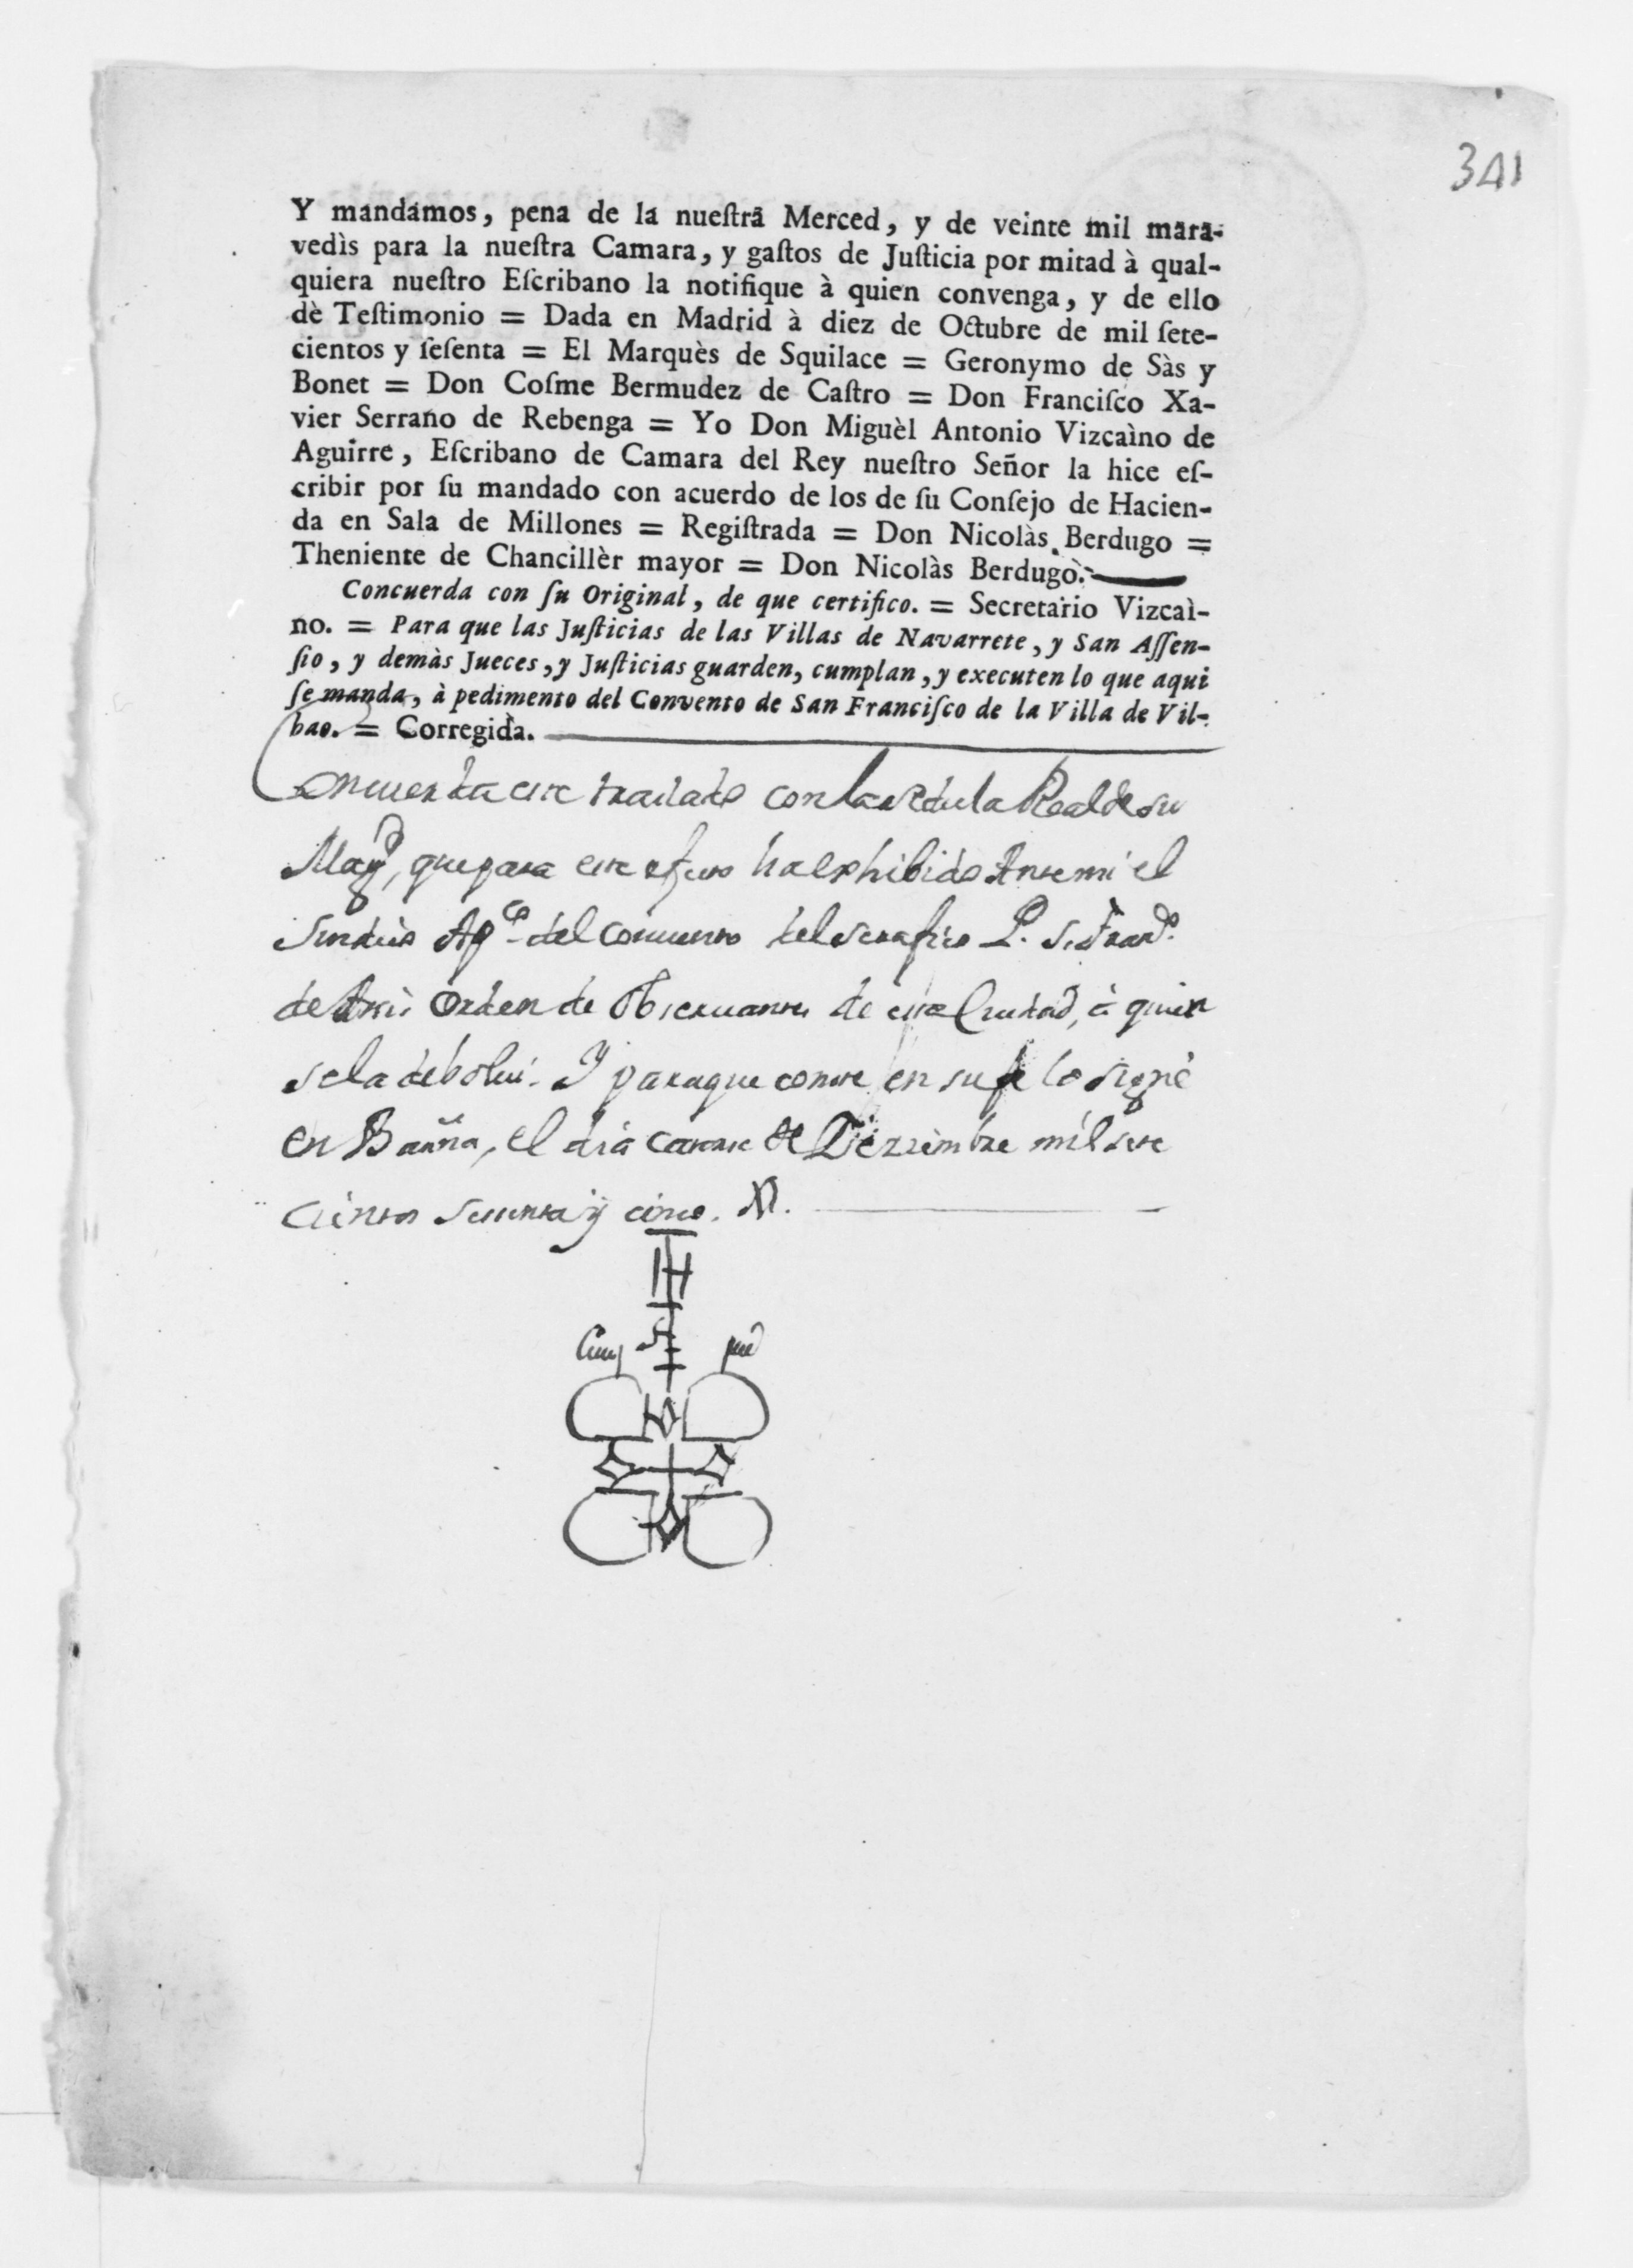 341
Y mandamos, pena de la nueſtra Merced, y de veinte mil mara-
vedìs para la nueſtra Camara, y gaſtos de Juſticia por mitad à qual-
quiera nueſtro Eſcribano la notifique à quien convenga, y de ello
dè Teſtimonio = Dada en Madrid à diez de Octubre de mil ſete-
cientos y ſeſenta = El Marquès de Squilace = Geronymo de Sàs y
Bonet = Don Coſme Bermudez de Caſtro = Don Franciſco Xa-
vier Serrano de Rebenga = Yo Don Miguèl Antonio Vizcaìno de
Aguirre, Eſcribano de Camara del Rey nueſtro Señor la hice eſ-
cribir por ſu mandado con acuerdo de los de ſu Conſejo de Hacien-
da en Sala de Millones = Regiſtrada = Don Nicolàs Berdugo =
Theniente de Chancillèr mayor = Don Nicolàs Berdugo.
Concuerda con ſu Original, de que certifico. = Secretario Vizcaì-
no. = Para que las Juſticias de las Villas de Navarrete, y San Aſſen-
ſio, y demàs Jueces, y Juſticias guarden, cumplan, y executen lo que aqui
ſe manda, à pedimento del Convento de San Franciſco de la Villa de Vil-
bao. = Corregida.
Concuerda este traslado con la Cedula Real de su
Mag.d, que para este efecto ha exhibido Ante mi el
Sindico App.co del Convento del Serafico P. S. Fran.co
de Asis Orden de Observantes de esta Ciudad, à quien
se la debolvi. Y para que conste en su fe lo signé
en Bauña, el dia catorze de Diziembre mil sete
cientos sesenta y cinco.
IH
S